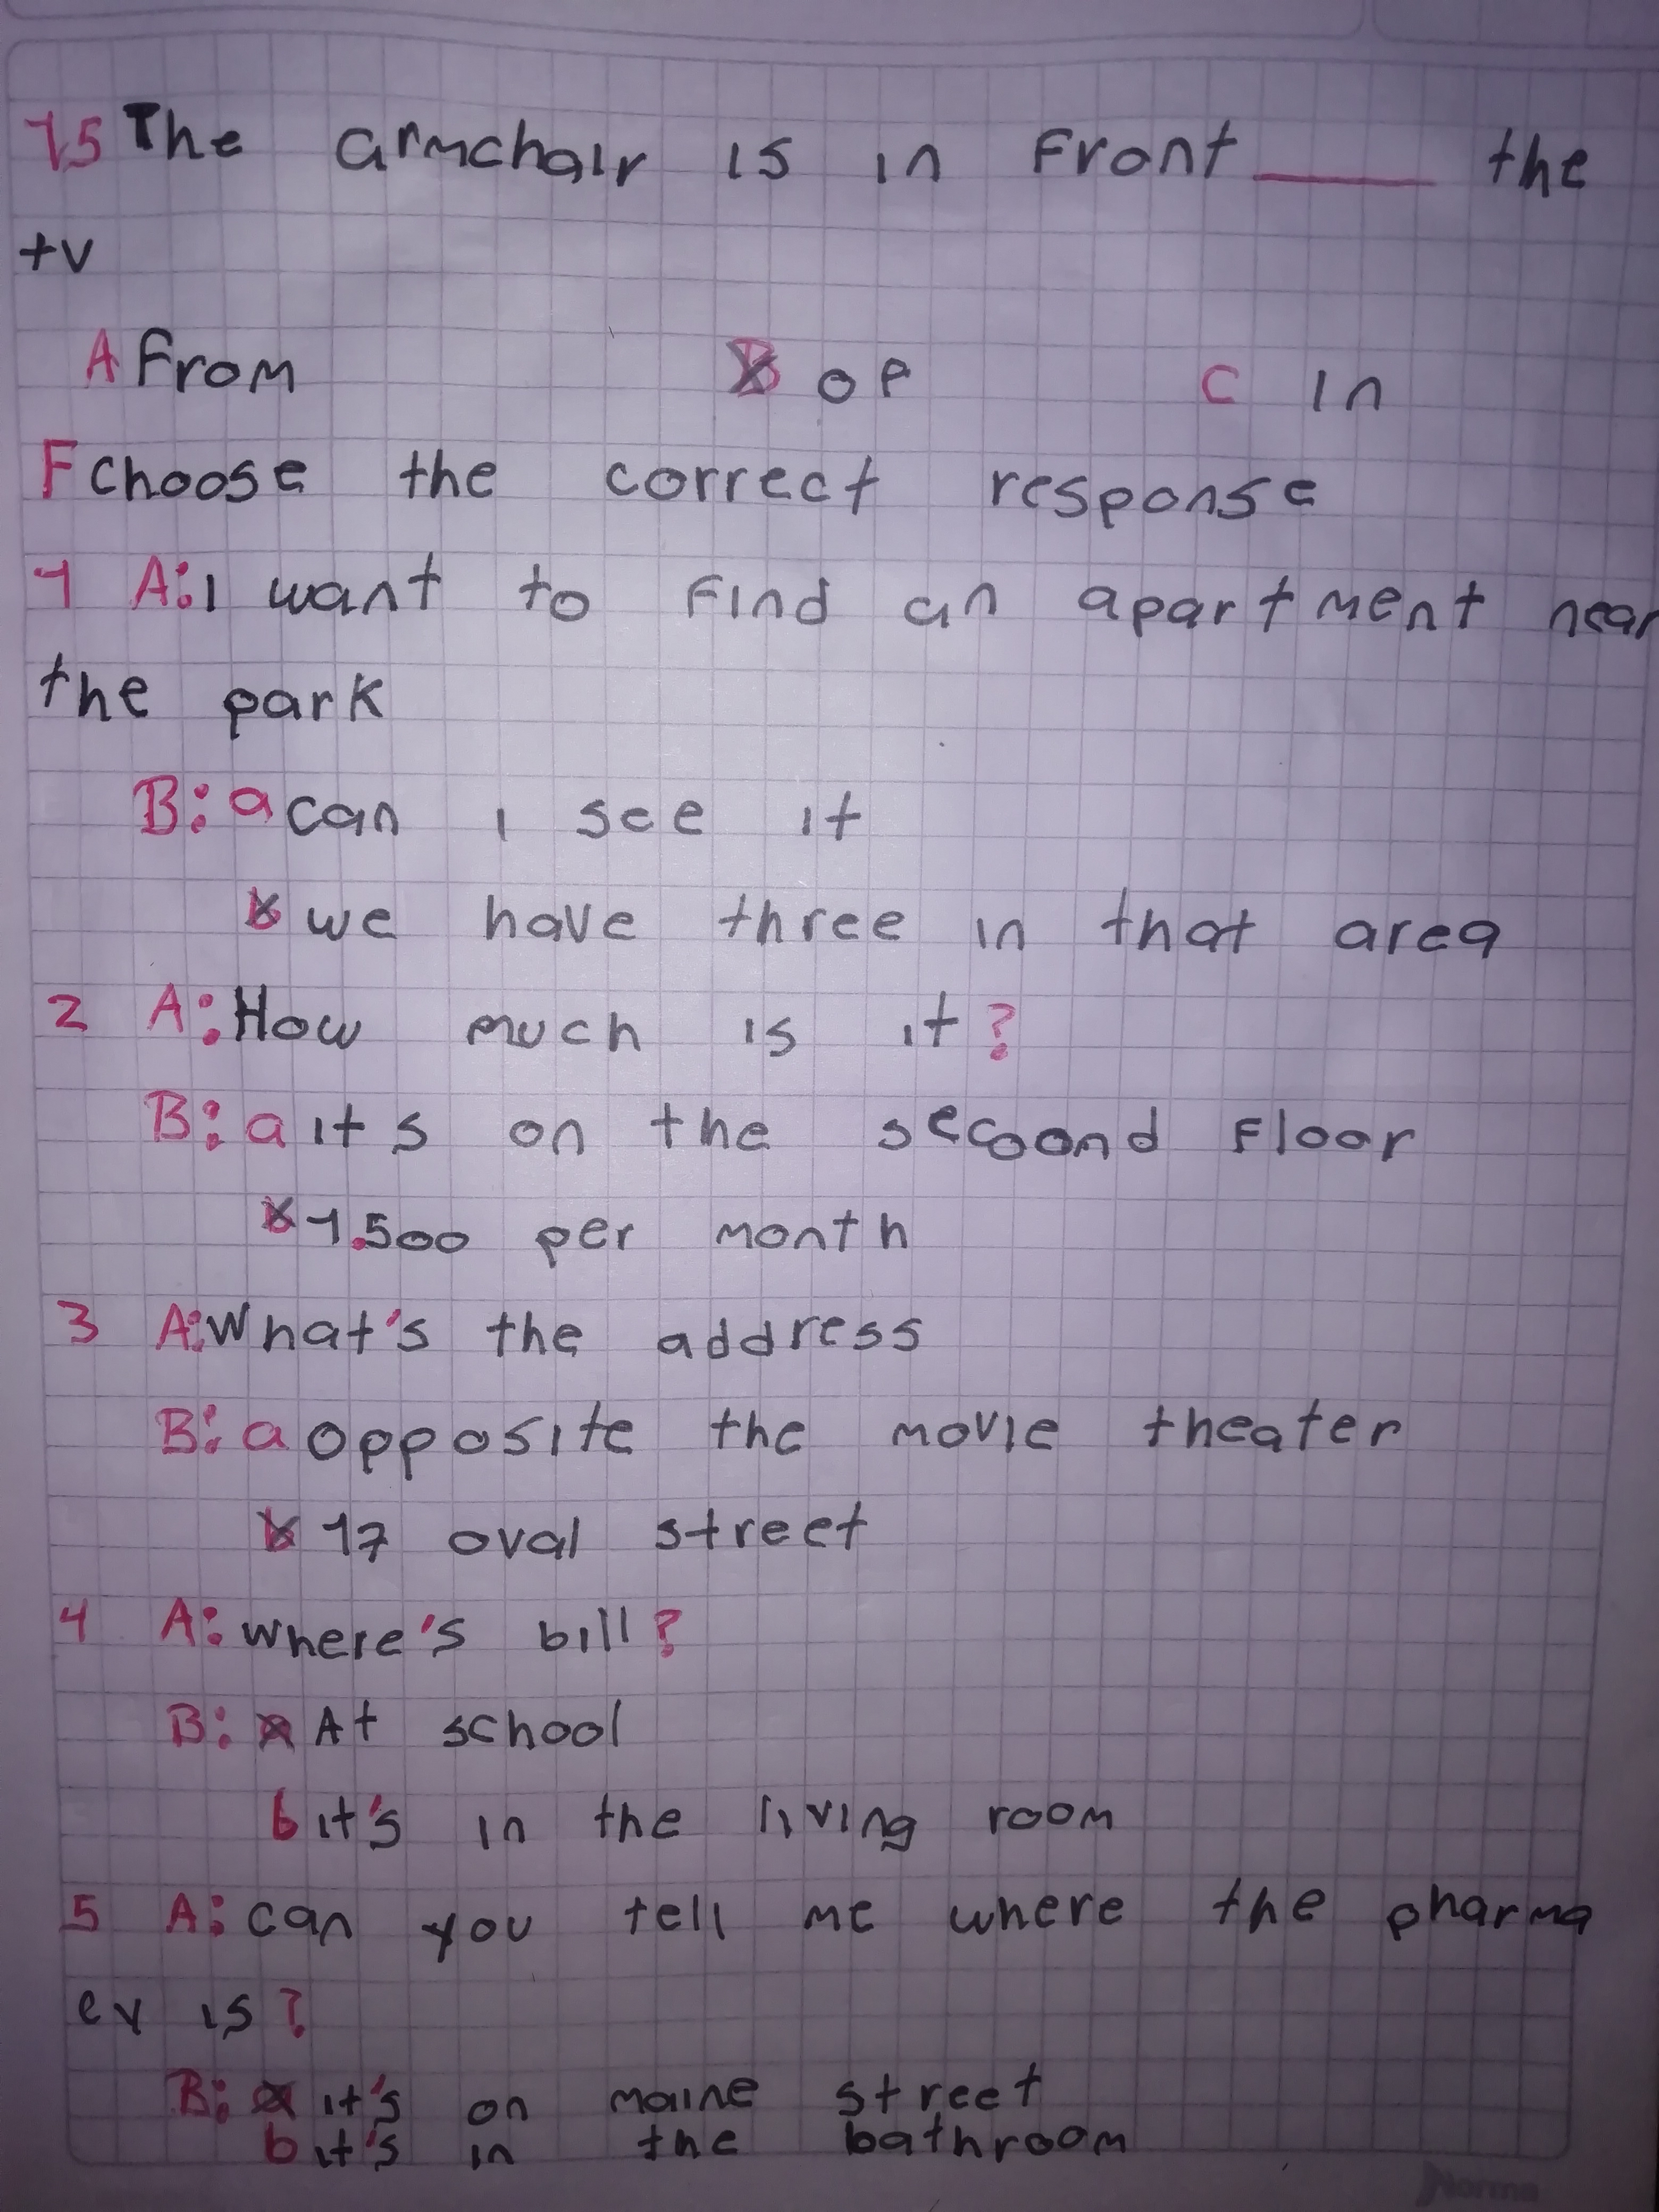 15 The armchair is in front ____ the
tv
A from B of C in
F choose the correct response
1 A: I want to find an apartment near
the park
B: a can i see it
b we have three in that area
2 A: How much is it?
B: a it s on the secoond floor
b 1.500 per month
3 A: What's the address
B: a opposite the movie theater
b 17 oval street
4 A: where's bill?
B: a At school
b it's in the living room
5 A: can you tell me where the pharma
cy is?
B: a it's on maine street
b it's in the bathroom
Norma